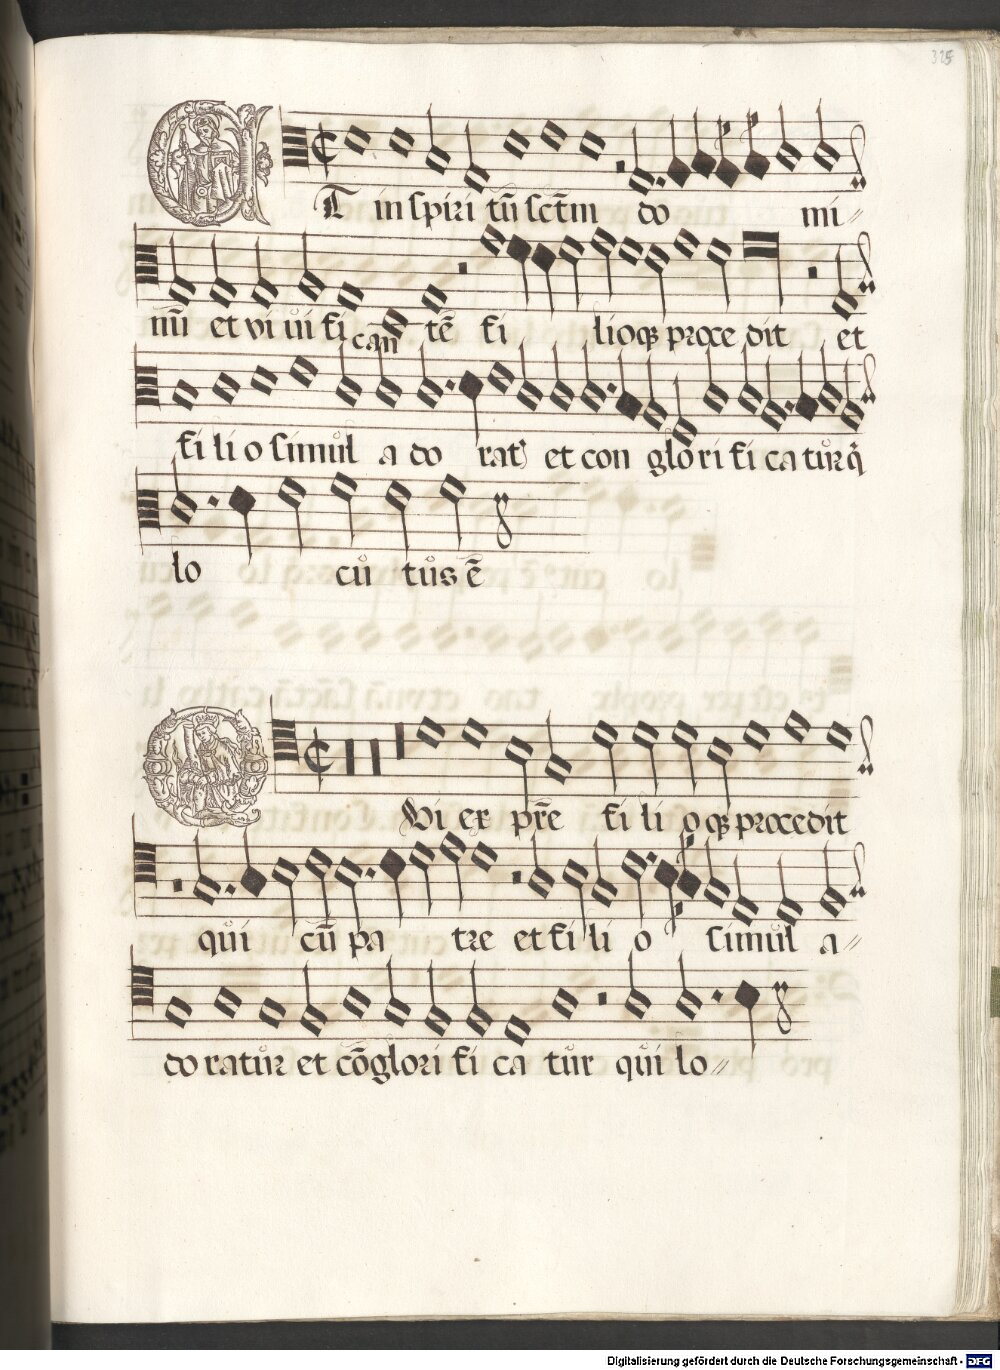 325
Et in spiri tū sctm do mi
nūı et vi ui fi can tē fi lioqȝ proce dit et
fi li o simul a do rat᷒ et con glo ri fi ca tur q̇
lo cu tus ē
Qui ex pr̄e fi li o qȝ procedit
qui cū pa tre et fi li o simul a
do ratur et cōglori fi ca tur qui lo
Digitalisierung gefördert durch die Deutsche Forschungsgemeinschaft - DFG